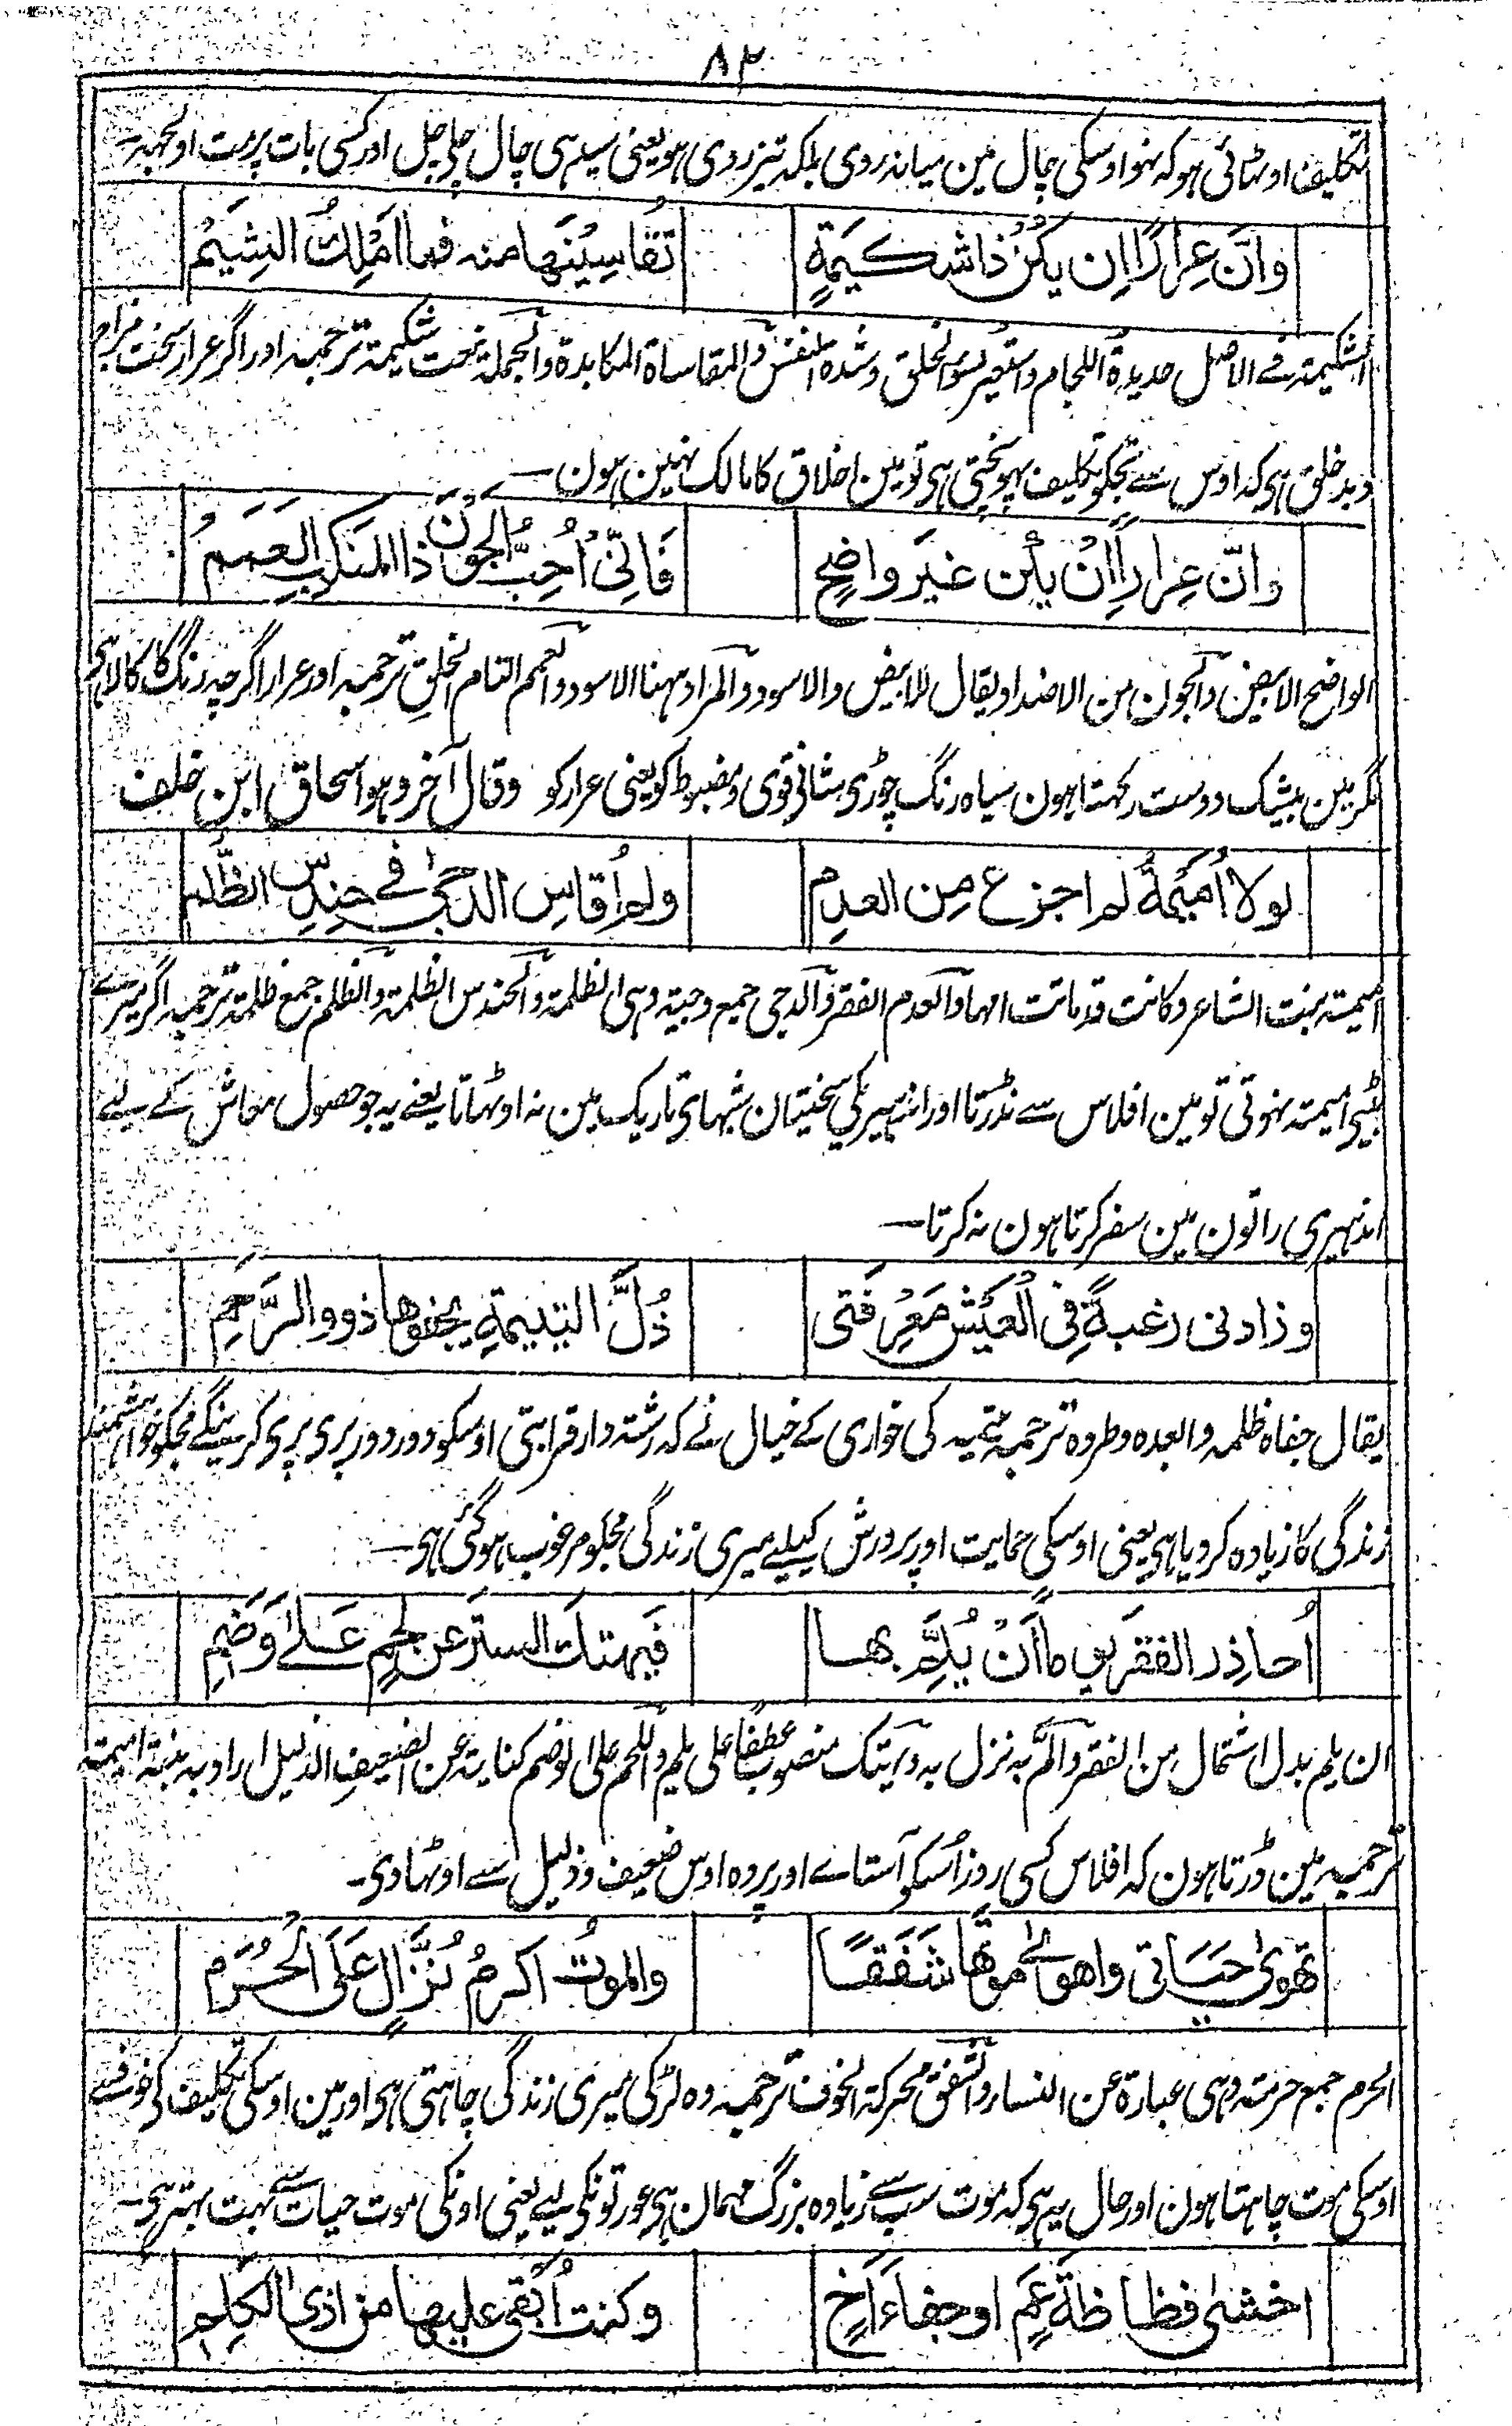 ۸۳
تکلیف اوٹھائی ہو کہ نہو اوسکی چال مین میانہ روی بلکہ تیز روی ہو یعنی سیدہی چال چلی چل اور کسی بات پر مت اولجہہ
وانَّ عِرارًا اِن یکُنْ ذا شکیمَةٍ تُقاسِیْنَها منه فما اَمْلِكُ الشِیَمْ
الشکیمتہ فے الاصل حدیدۃ اللجام واستعیر لسوء الخلق وشدہ النفس والمقاساۃ المکابدۃ والجملۃ نعت شکیمۃ ترجمہ اور اگر عرار سخت مزاج
وبد خلق ہی کہ اوس سے تجکو تکلیف پہونچتی ہی تو مین اخلاق کا مالک نہین ہون
وانّ عِرارًا اِنْ یکُن غیرَ واضِحٍ فَاِنّیْ اُحِبُّ الجَوْنَ ذا المنکِبِ العَمَمْ
الواضح الابیض والجون من الاضداد یقال للابیض والاسود والمراد ہہنا الاسود والعمم التام الخلق ترجمہ اور عرار اگرچہ رنگ کا کالا ہی
مگر مین بیشک دوست رکہتا ہون سیاہ رنگ چوڑی شانی قوی ومضبوط کو یعنی عرار کو وقال آخر وہو اسحاق ابن خلف
لولا اُمَیْمَةُ لم اجزع مِن العدِم ولم اُقاسِ الدجٰی فے حِندِسِ الظُّلَمِ
امیمتہ بنت الشاعر وکانت قد ماتت امہا والعدم الفقر والدجی جمیع دجیۃ وہی الظلمۃ والحندس الظلمۃ والظلم جمع ظلمۃ ترجمہ اگر میرے
بیٹی امیمتہ نہوتی تو مین افلاس سے نڈرتا اور اندہیریکی سختیان شبہای تاریک مین نہ اوٹہاتا یعنے یہ جو حصول معاش کے لیے
اندہیری راتون مین سفر کرتا ہون نہ کرتا
وزادنی رغبةً فِی العَیْشِ مَعْرِفَتی ذُلَّ الیتیمةِ یجفوها ذوو الرَّحِمِ
یقال جفاہ ظلمہ وابعدہ وطردہ ترجمہ یتیمہ کی خواری کے خیال نے کہ رشتہ دار قرابتی اوسکو دور دور پری پری کرینگے مجکو خواہشمند
زندگی کا زیادہ کردیا ہی یعنی اوسکی حمایت اور پرورش کیلیے میری زندگی مجکو مرغوب ہو گئی ہی
اُحاذِر الفقرَ یوما اَنْ یُلِمَّ بها فَیهتكَ السترَ عن لحمٍ عَلٰے وَضَمِ
ان یلم بدل اشتمال من الفقر والَمّ بہ نزل بہ ویہتک منصوب عطفًا علی یلم واللحم علی الوضم کنایتہ عن الضعیف الذلیل اراد بہ بنتہ امیمتہ
ترجمہ مین ڈرتا ہون کہ افلاس کسی روز اُسکو آستاے اور پردہ اوس ضعیف وذلیل سے اوٹہادی
تهوی حیَاتی واهوٰے موتَها شَفَقًا والموتُ اکرمُ نُزَّالٍ عَلَی الحُرَمِ
الحرم جمع حرمتہ وہی عبارۃ عن النساء والشفق محرکۃ الخوف ترجمہ وہ لڑکی میری زندگی چاہتی ہی اور مین اوسکی تکلیف کی خوف سے
اوسکی موت چاہتا ہون اور حال یہ ہی کہ موت سب سے زیادہ بزرگ مہمان ہی عورتونکی لیے یعنی اونکی موت حیات سے بہت بہتر ہی
اخشٰی فظاظةَ عَمٍّ او جفاءَ اَخٍ وکنت اُبْقی علیها من اذی الکَلِمِ